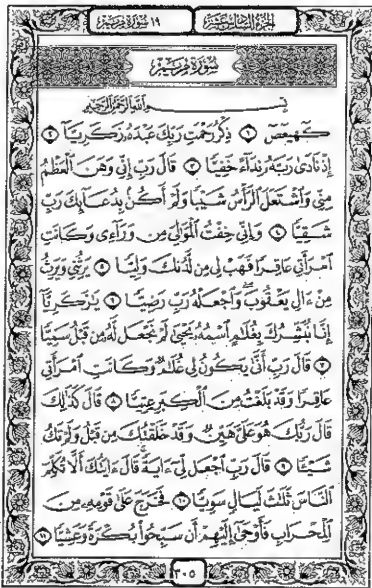 الجزء السادس عشر ١٩ سورة مريم
سورة مريم
بسم الله الرحمن الرحيم
كٓهيعٓصٓ ١ ذِكْرُ رَحْمَتِ رَبِّكَ عَبْدَهُۥ زَكَرِيَّآ ٢
إِذْ نَادَىٰ رَبَّهُۥ نِدَآءً خَفِيًّا ٣ قَالَ رَبِّ إِنِّي وَهَنَ ٱلْعَظْمُ
مِنِّي وَٱشْتَعَلَ ٱلرَّأْسُ شَيْبًا وَلَمْ أَكُنۢ بِدُعَآئِكَ رَبِّ
شَقِيًّا ٤ وَإِنِّي خِفْتُ ٱلْمَوَٰلِيَ مِن وَرَآءِي وَكَانَتِ
ٱمْرَأَتِي عَاقِرًا فَهَبْ لِي مِن لَّدُنكَ وَلِيًّا ٥ يَرِثُنِي وَيَرِثُ
مِنْ ءَالِ يَعْقُوبَ ۖ وَٱجْعَلْهُ رَبِّ رَضِيًّا ٦ يَٰزَكَرِيَّآ
إِنَّا نُبَشِّرُكَ بِغُلَٰمٍ ٱسْمُهُۥ يَحْيَىٰ لَمْ نَجْعَل لَّهُۥ مِن قَبْلُ سَمِيًّا
٧ قَالَ رَبِّ أَنَّىٰ يَكُونُ لِي غُلَٰمٌ وَكَانَتِ ٱمْرَأَتِي
عَاقِرًا وَقَدْ بَلَغْتُ مِنَ ٱلْكِبَرِ عِتِيًّا ٨ قَالَ كَذَٰلِكَ
قَالَ رَبُّكَ هُوَ عَلَيَّ هَيِّنٌ وَقَدْ خَلَقْتُكَ مِن قَبْلُ وَلَمْ تَكُ
شَيْـًٔا ٩ قَالَ رَبِّ ٱجْعَل لِّيٓ ءَايَةً ۚ قَالَ ءَايَتُكَ أَلَّا تُكَلِّمَ
ٱلنَّاسَ ثَلَٰثَ لَيَالٍ سَوِيًّا ١٠ فَخَرَجَ عَلَىٰ قَوْمِهِۦ مِنَ
ٱلْمِحْرَابِ فَأَوْحَىٰٓ إِلَيْهِمْ أَن سَبِّحُوا۟ بُكْرَةً وَعَشِيًّا ١١
٣٠٥